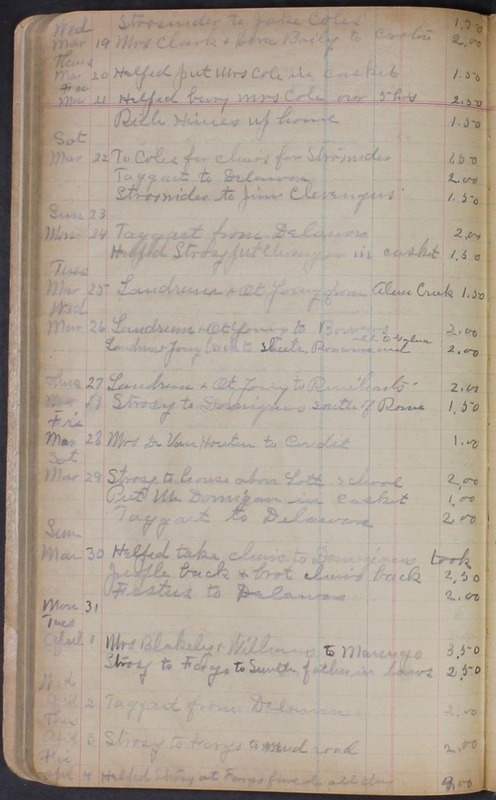 Wed Strosnider to Jake Coles 1.50
Mar 19 Mrs Clark & Dora Baily to 2.00
Thurs
Mar 20 Helped put Mrs Cole in casket 1.50
Fri
Mar 21 Helped bury Mrs Cole over 5 hrs 2.50
Hines up home 1.50
Sat
Mar 22 To Coles for chairs for Strosnider 1.50
Taggart to Delaware 2.00
Strosnider to Jim Clevengers 1.50
Sun 23
Mon 24 Taggart from Delaware 2.00
Helped Strosy put Clevenger in casket 1.50
Tues
Mar 25 Landrum & Ot Young from Alum Creek 1.50
Wed
Mar 26 Landrum & Ot Young to 2.00
Landrum & Young back to 2.00
Thurs 27 Landrum & Ot Young to 2.00
Mar 27 Strosy to Dornigans south of Rome 1.50
Fri
Mar 28 Mrs Dr Van Houten to Cardit 1.00
Sat
Mar 29 Strosy to house above Lott school 2.00
Put Mr Dornigan in casket 1.00
Taggart to Delaware 2.00
Sun
Mar 30 Helped take chairs to Dornigans took
people back & brot chairs back 2.50
Festus to Delaware 2.00
Mon 31
Tues
April 1 Mrs Blakely & Williams to Marengo 3.50
Strosy to Fargo to father in laws 2.50
Wed
April 2 Taggart from Delaware 2.00
Thur
April 3 Strosy to Fargo mud road 2.00
Fri
April 4 Helped Strosy at Fargo all day